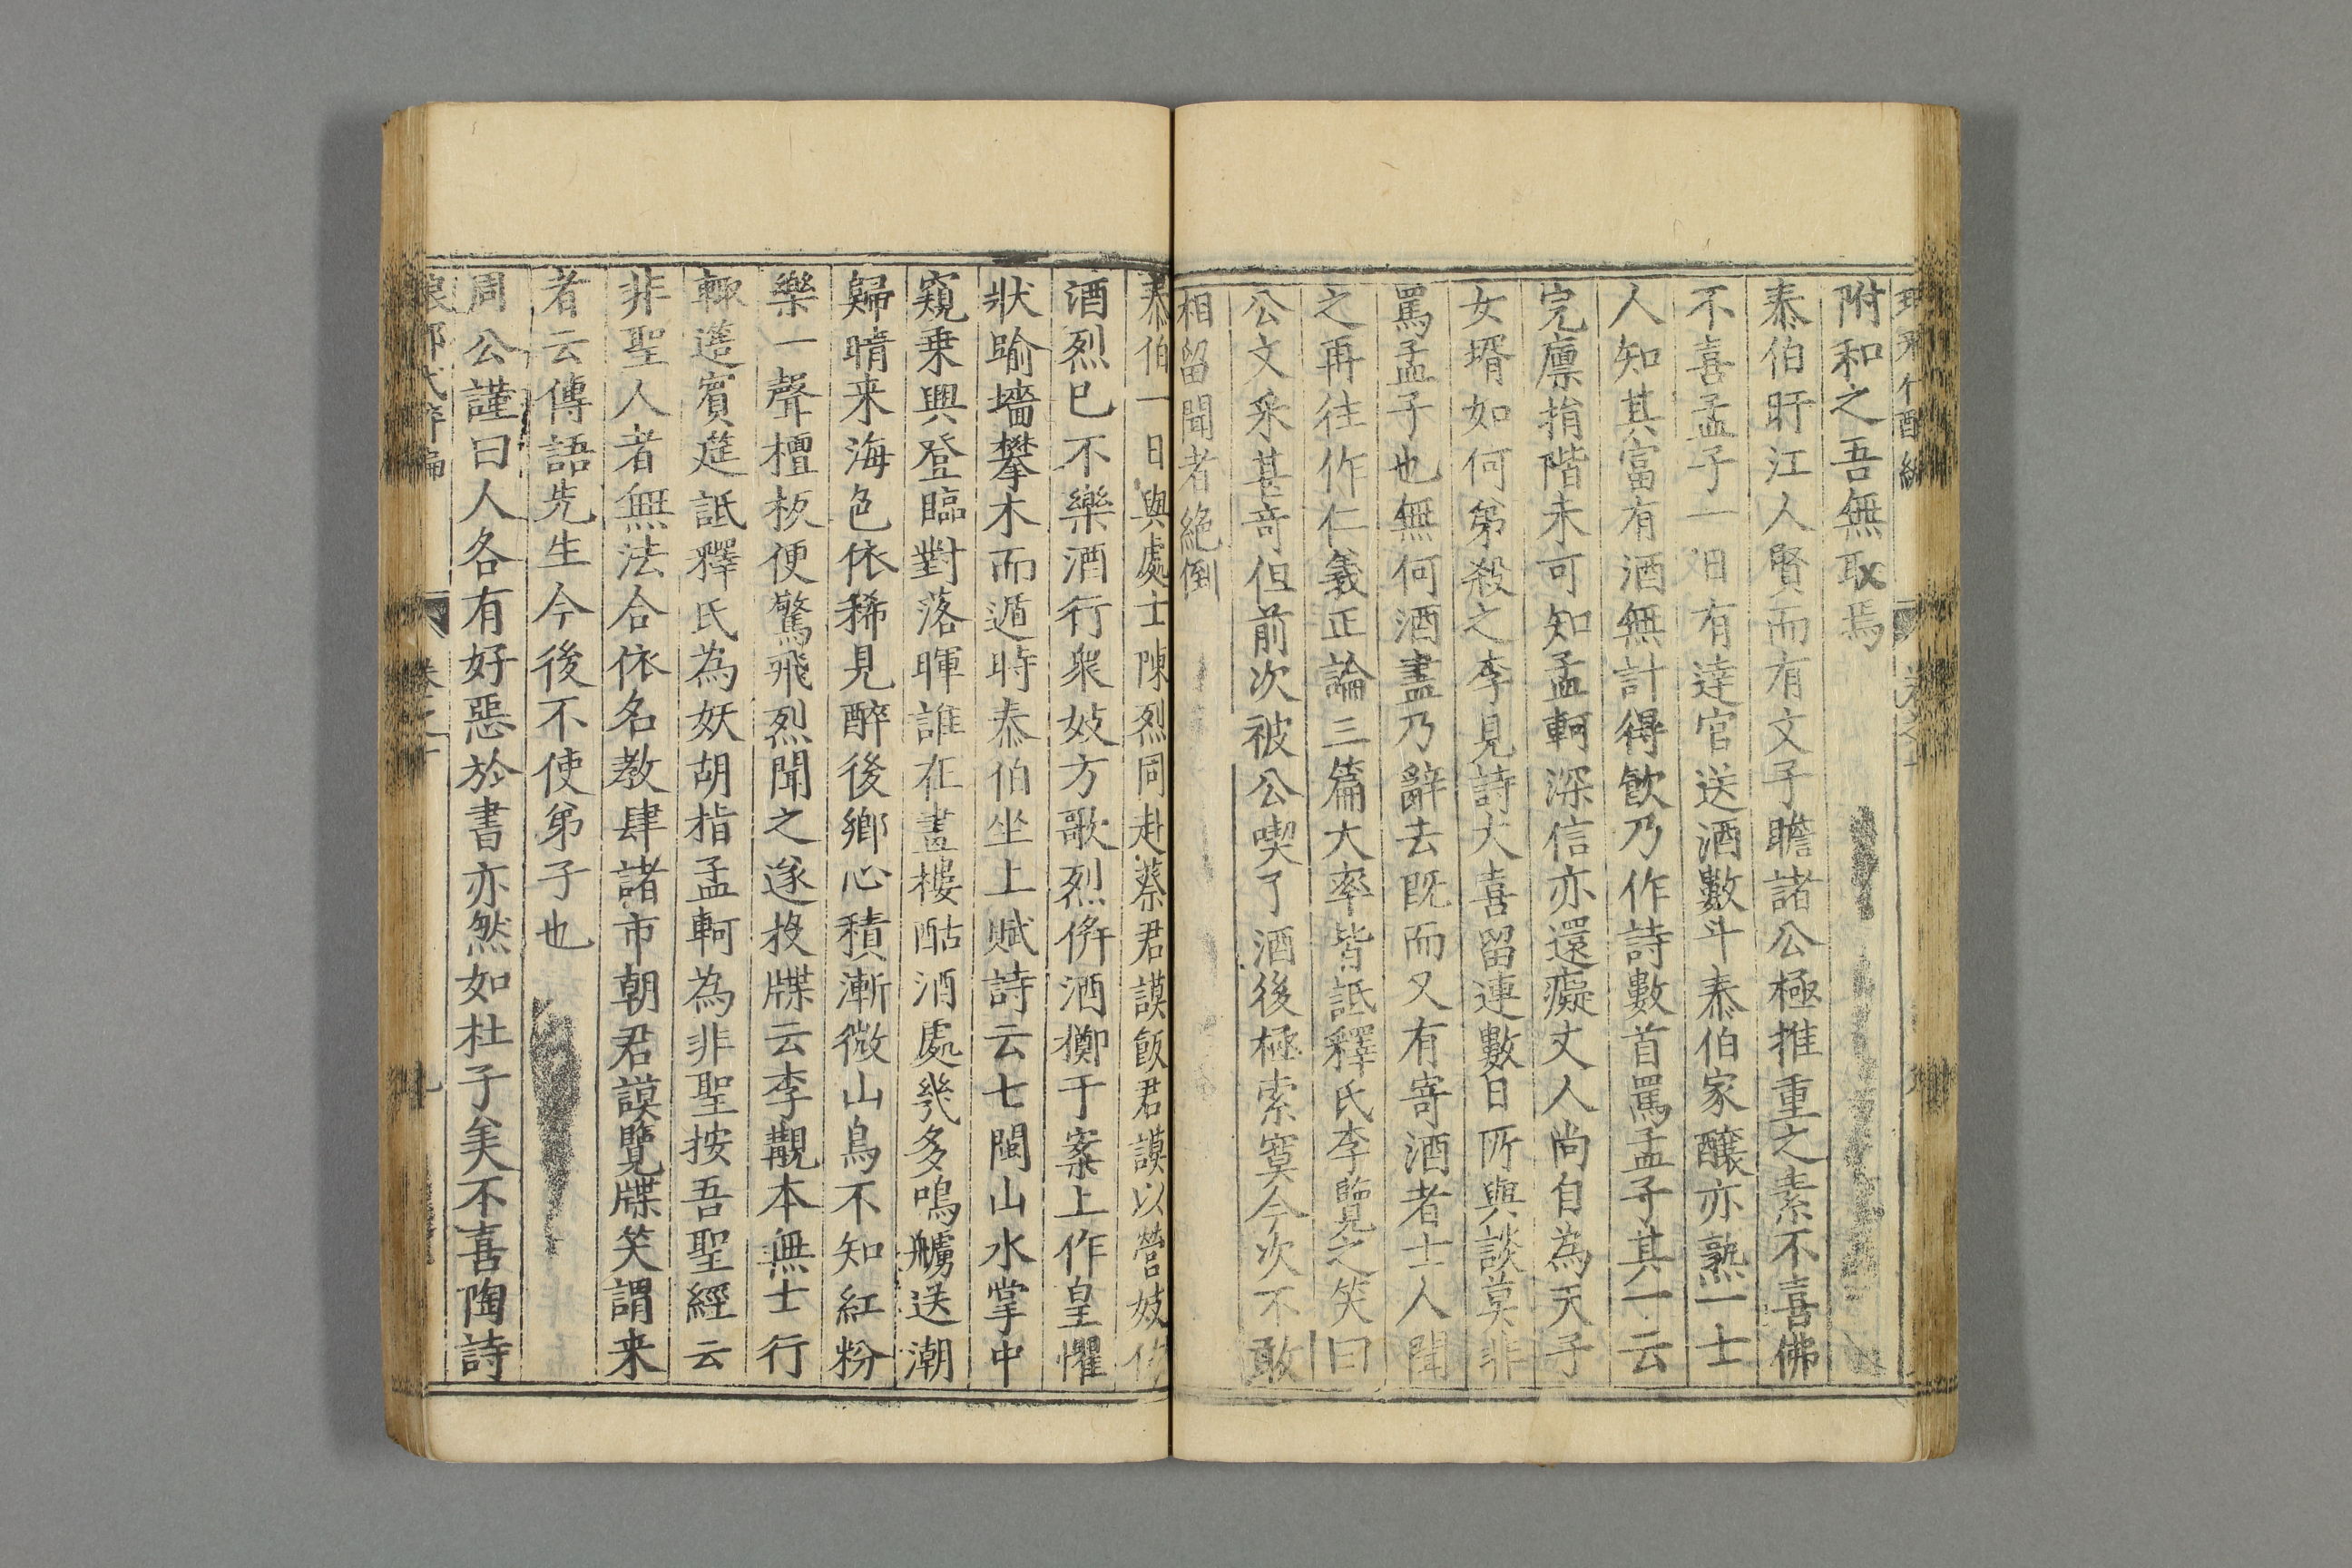 附和之吾無取焉
泰伯盱江人賢而有文子瞻諸公極推重之素不喜佛
不喜孟子一日有達官送酒數斗泰伯家釀亦熟一士
人知其富有酒無計得飲乃作詩數首罵孟子其一云
完廪捐階未可知孟軻深信亦還癡丈人尚自為天子
女壻如何弟殺之李見詩大喜留連數日所與談莫非
罵孟子也無何酒盡乃辭去既而又有寄酒者士人聞
之再往作仁義正論三篇大率皆詆釋氏李覽之笑曰
公文采甚奇但前次被公喫了酒後極索寞今次不敢
相留聞者絶倒
泰伯一日與處士陳烈同赴蔡君謨飯君謨以營妓佐
酒烈已不樂酒行衆妓方歌烈併酒擲于案上作皇懼
狀踰墻攀木而遁時泰伯坐上賦詩云七閩山水掌中
窺乗興登臨對落暉誰在畫樓酤酒處幾多鳴艣送潮
歸晴来海色依稀見醉後鄉心積漸微山鳥不知紅粉
樂一聲檀板便驚飛烈聞之遂投牒云李覯本無士行
輙造賓筵詆釋氏為妖胡指孟軻為非聖按吾聖經云
非聖人者無法合依名教肆諸市朝君謨覽牒笑謂来
者云傳語先生今後不使弟子也
周公謹曰人各有好惡於書亦然如杜子美不喜陶詩